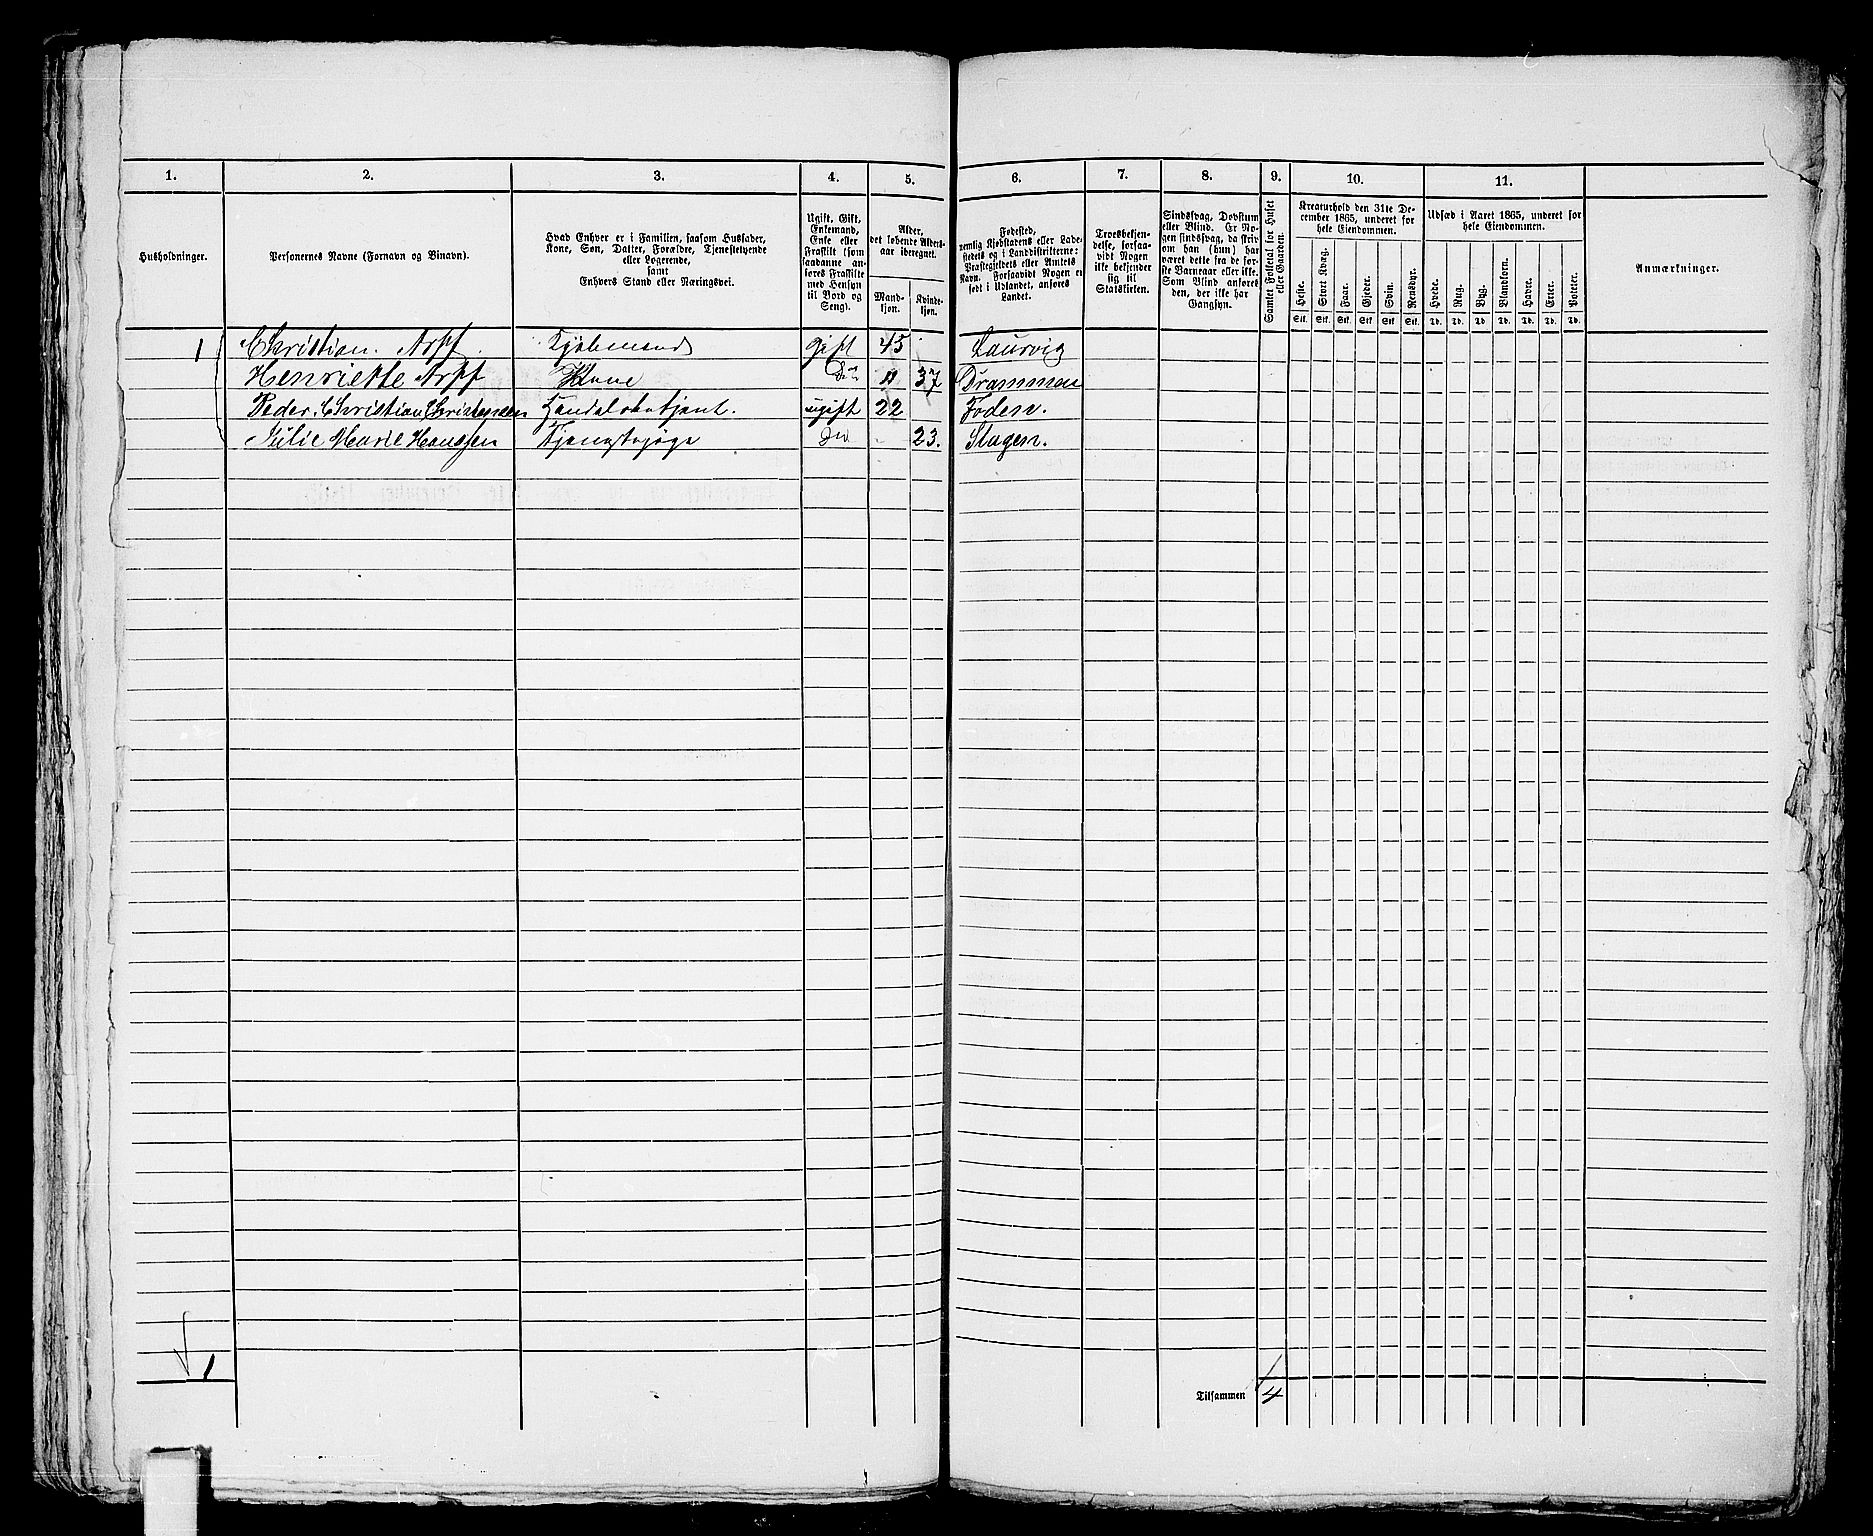 1. 2. 3. 4. 5. 6. 7. 8. 9. 10. 11.
Husholdninger.
Personernes Navne (Fornavn og Binavn).
Hvad Enhver er i Familien, saasom Husfader,
Kone, Søn, Datter, Forældre, Tjenestetyende
eller Logerende,
samt
Enhvers Stand eller Næringsvei.
Ugift, Gift,
Enkemand,
Enke eller
Fraskilt (som
saadanne an-
føres Fraskilte
med Hensyn
til Bord og
Seng).
Alder,
det løbende Alders-
aar iberegnet.
Mand-
kjøn.
Kvinde-
kjøn.
Fødested,
nemlig Kjøbstadens eller Lade-
stedets og i Landdistrikterne:
Præstegjeldets eller Amtets
Navn. Forsaavidt Nogen er
født i Udlandet, anføres
Landet.
Troesbekjen-
delse, forsaa-
vidt Nogen
ikke bekjender
sig til
Statskirken.
Sindssvag, Døvstum
eller Blind. Er No-
gen sindssvag, da skriv
om han (hun) har
været dette fra de før-
ste Barneaar eller ikke.
Som Blind anføres
den, der ikke har
Gangsyn.
Samlet Folketal for Huset
eller Gaarden.
Kreaturhold den 31te De-
cember 1865, underet for
hele Eiendommen.
Heste. Stort Kvæg. Faar. Gjeder. Svin. Rensdyr.
Stk. Stk. Stk. Stk. Stk. Stk.
Udsæd i Aaret 1865, underet for
hele Eiendommen.
Hvede. Rug. Byg. Blandkorn. Havre. Erter. Poteter.
Td. Td. Td. Td. Td. Td. Td.
Anmærkninger.
1 Christian. Arff. Kjøbmand gift 45 Laurvig
Henriette Arff Kone Do " 37 Drammen
Peder Christian Christensen Handelsbetjent. ugift 22 Foden.
Julie Marie Hansen Tjenestepige Do 23. Slagen.
1
Tilsammen 4